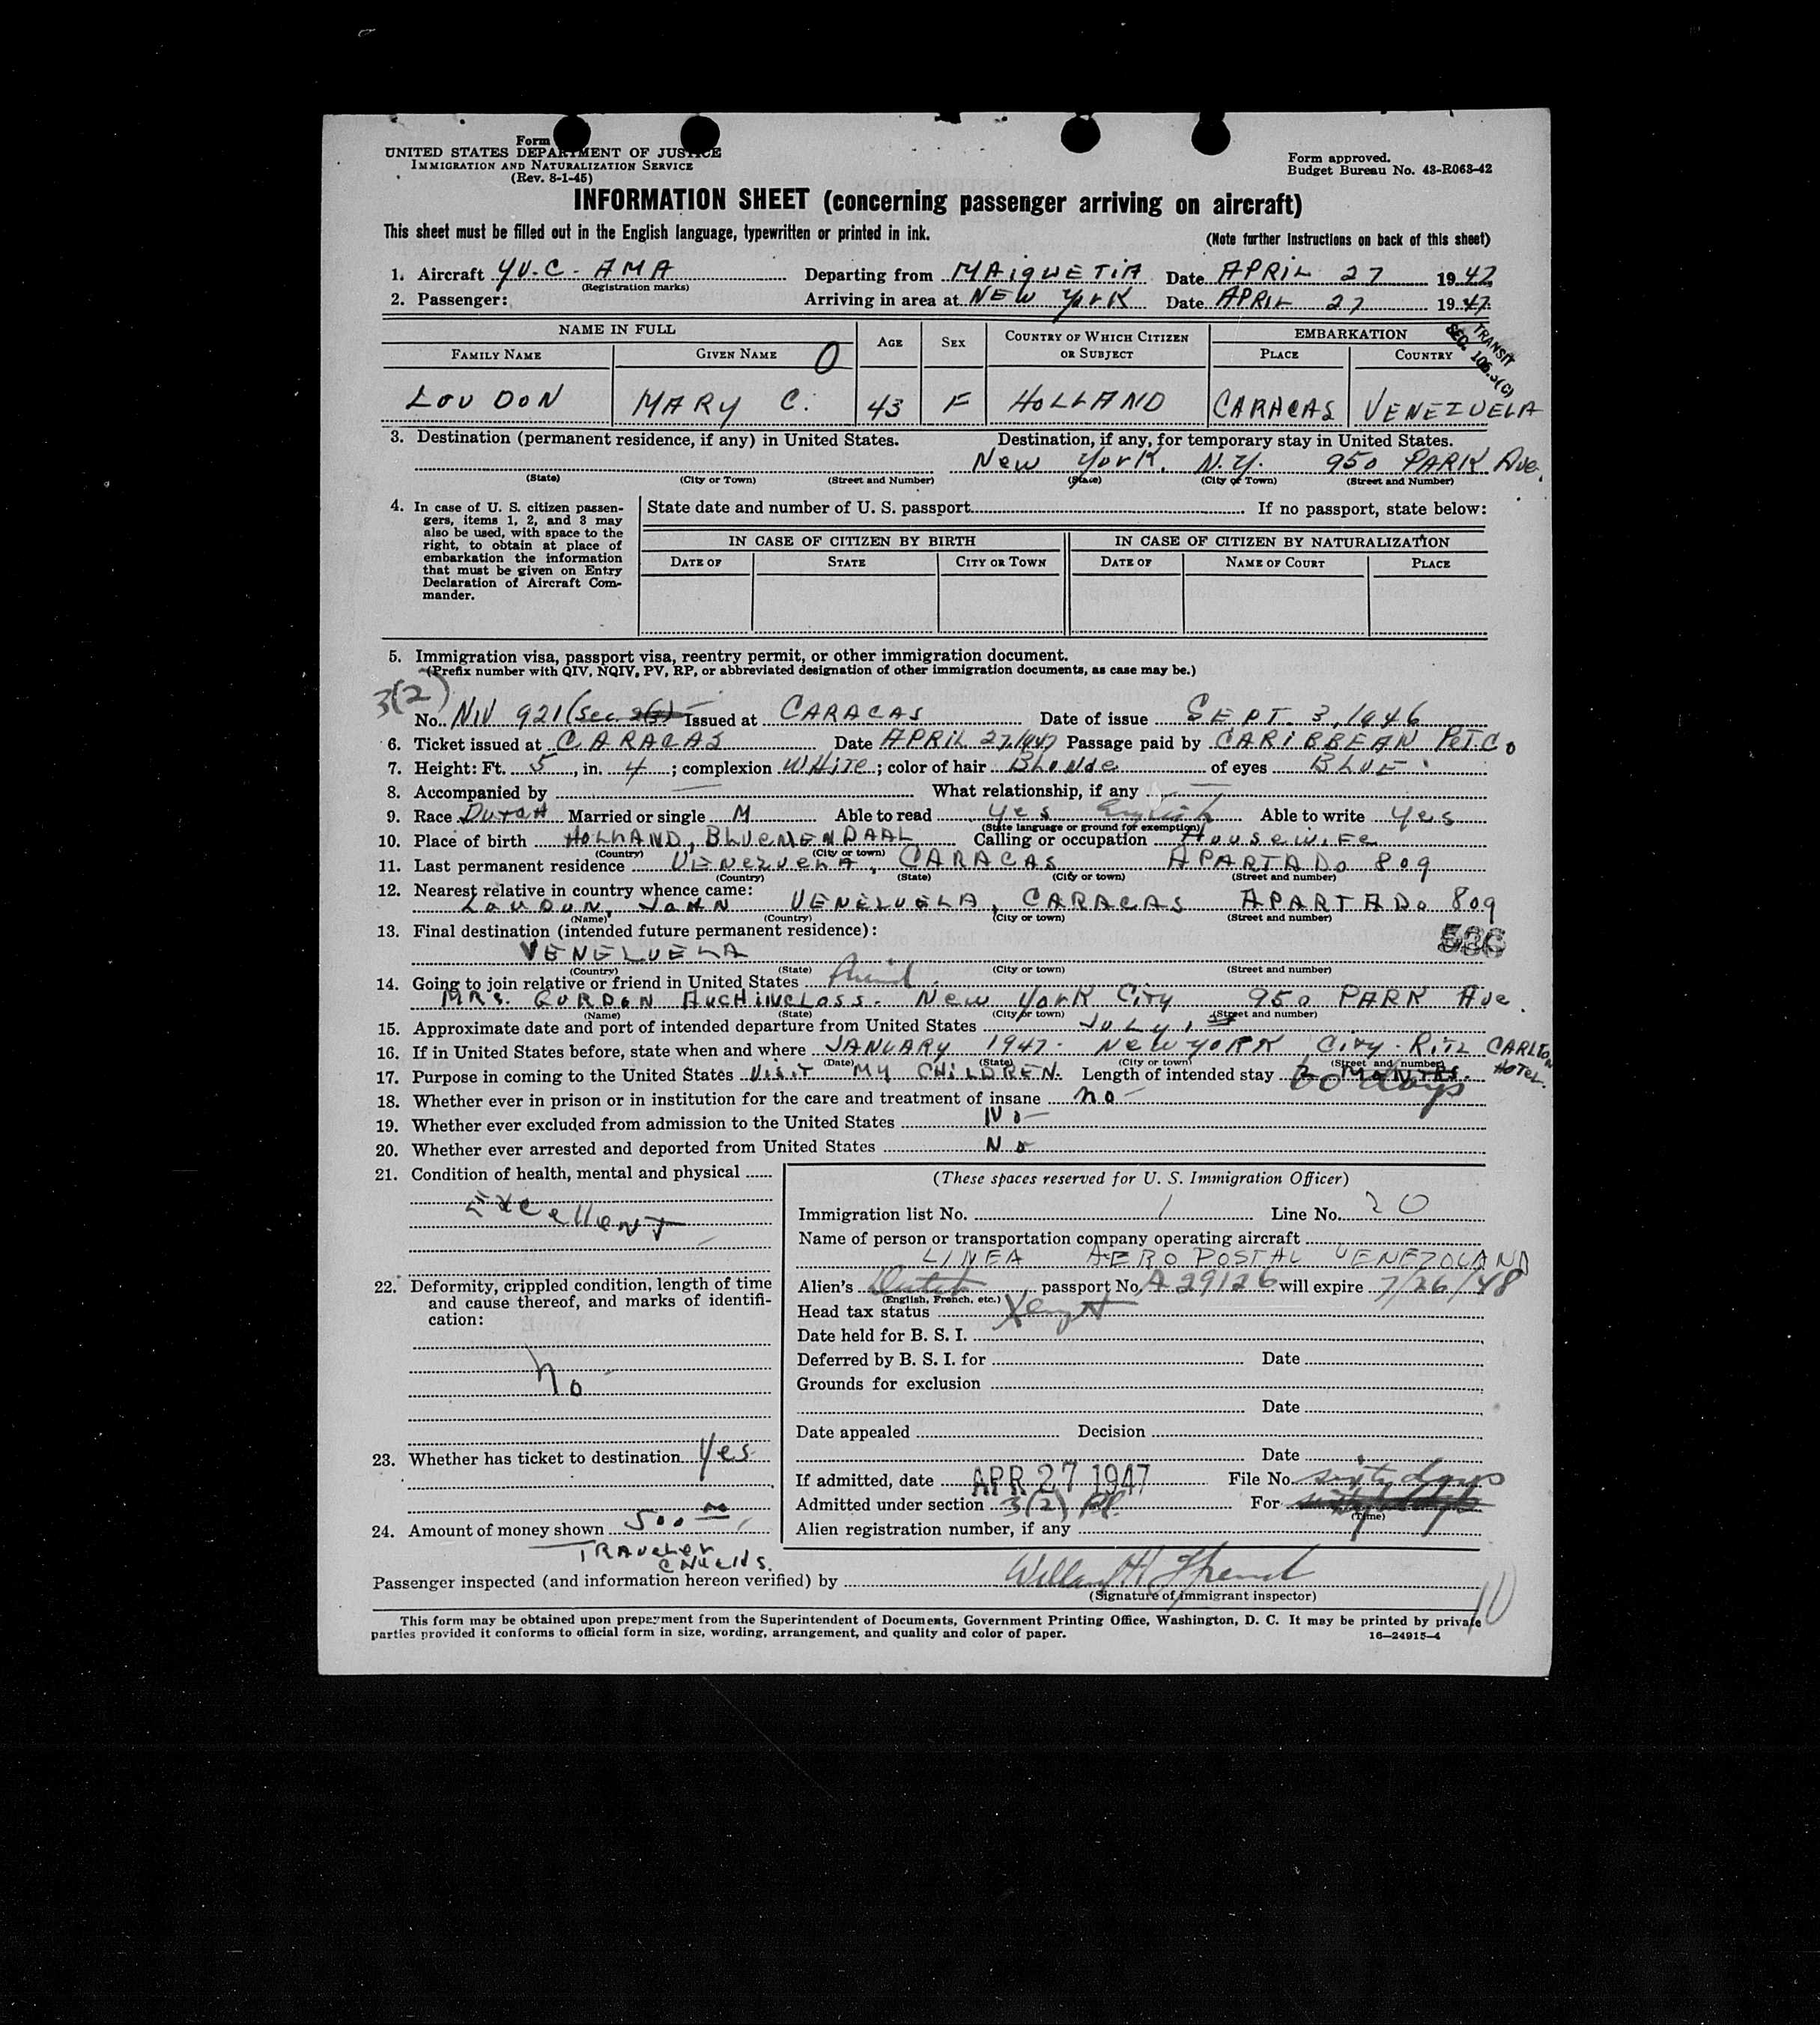 Form
UNITED STATES DEPARTMENT OF JUSTICE
IMMIGRATION AND NATURALIZATION SERVICE
(Rev. 8-1-45)
Form approved.
Budget Bureau No. 43-R063-42
INFORMATION SHEET (concerning passenger arriving on aircraft)
This sheet must be filled out in the English language, typewritten or printed in ink.
(Note further instructions on back of this sheet)
1. Aircraft YV-C-AMA Departing from MAIQUETIA Date APRIL 27 1947
(Registration marks)
2. Passenger: Arriving in area at NEW YORK Date APRIL 27 1947
TRANSIT
SEC. 106.3(C)
NAME IN FULL AGE SEX COUNTRY OF WHICH CITIZEN OR SUBJECT EMBARKATION
FAMILY NAME GIVEN NAME O PLACE COUNTRY
LOUDON MARY C. 43 F HOLLAND CARACAS VENEZUELA
3. Destination (permanent residence, if any) in United States. Destination, if any, for temporary stay in United States.
New York. N.Y. 950 PARK Ave.
(State) (City or Town) (Street and Number) (State) (City or Town) (Street and Number)
4. In case of U. S. citizen passen-
gers, items 1, 2, and 3 may
also be used, with space to the
right, to obtain at place of
embarkation the information
that must be given on Entry
Declaration of Aircraft Com-
mander.
State date and number of U. S. passport If no passport, state below:
IN CASE OF CITIZEN BY BIRTH IN CASE OF CITIZEN BY NATURALIZATION
DATE OF STATE CITY OR TOWN DATE OF NAME OF COURT PLACE
5. Immigration visa, passport visa, reentry permit, or other immigration document.
(Prefix number with QIV, NQIV, PV, RP, or abbreviated designation of other immigration documents, as case may be.)
3(2)
No. NIV 921 (Sec. Issued at CARACAS Date of issue SEPT. 3, 1946
6. Ticket issued at CARACAS Date APRIL 27, 1947 Passage paid by CARIBBEAN PET. Co
7. Height: Ft. 5, in. 4; complexion WHITE; color of hair Blonde of eyes BLUE
8. Accompanied by — What relationship, if any —
9. Race DUTCH Married or single M Able to read yes English Able to write yes
(State language or ground for exemption)
10. Place of birth HOLLAND, BLUEMENDAAL Calling or occupation Housewife
(Country) (City or town)
11. Last permanent residence VENEZUELA, CARACAS APARTADO 809
(Country) (State) (City or town) (Street and number)
12. Nearest relative in country whence came:
LOUDON, JOHN VENEZUELA, CARACAS APARTADO 809
(Name) (Country) (City or town) (Street and number)
13. Final destination (intended future permanent residence):
536
VENEZUELA
(Country) (State) (City or town) (Street and number)
14. Going to join relative or friend in United States Friend
MRS. GORDON AUCHINCLOSS. New York City 950 PARK Ave.
(Name) (State) (City or town) (Street and number)
15. Approximate date and port of intended departure from United States July 1st
16. If in United States before, state when and where JANUARY 1947. New YORK City. RITZ CARLTON HOTEL.
(Date) (State) (City or town) (Street and number)
17. Purpose in coming to the United States VISIT MY CHILDREN. Length of intended stay 2 MONTHS. 60 days
18. Whether ever in prison or in institution for the care and treatment of insane no -
19. Whether ever excluded from admission to the United States No -
20. Whether ever arrested and deported from United States No
21. Condition of health, mental and physical
Excellent
22. Deformity, crippled condition, length of time
and cause thereof, and marks of identifi-
cation:
no
23. Whether has ticket to destination Yes
24. Amount of money shown 500
TRAVELER
CHECKS.
(These spaces reserved for U. S. Immigration Officer)
Immigration list No. 1 Line No. 20
Name of person or transportation company operating aircraft
LINEA AEROPOSTAL VENEZOLANA
Alien's Dutch passport No. A 29126 will expire 7/26/48
(English, French, etc.)
Head tax status Xempt
Date held for B. S. I.
Deferred by B. S. I. for Date
Grounds for exclusion
Date
Date appealed Decision
Date
If admitted, date APR 27 1947 File No. sixty days
Admitted under section 3(2) For
(Time)
Alien registration number, if any
Passenger inspected (and information hereon verified) by
(Signature of immigrant inspector)
10
This form may be obtained upon prepayment from the Superintendent of Documents, Government Printing Office, Washington, D. C. It may be printed by private
parties provided it conforms to official form in size, wording, arrangement, and quality and color of paper.
16—24915-4